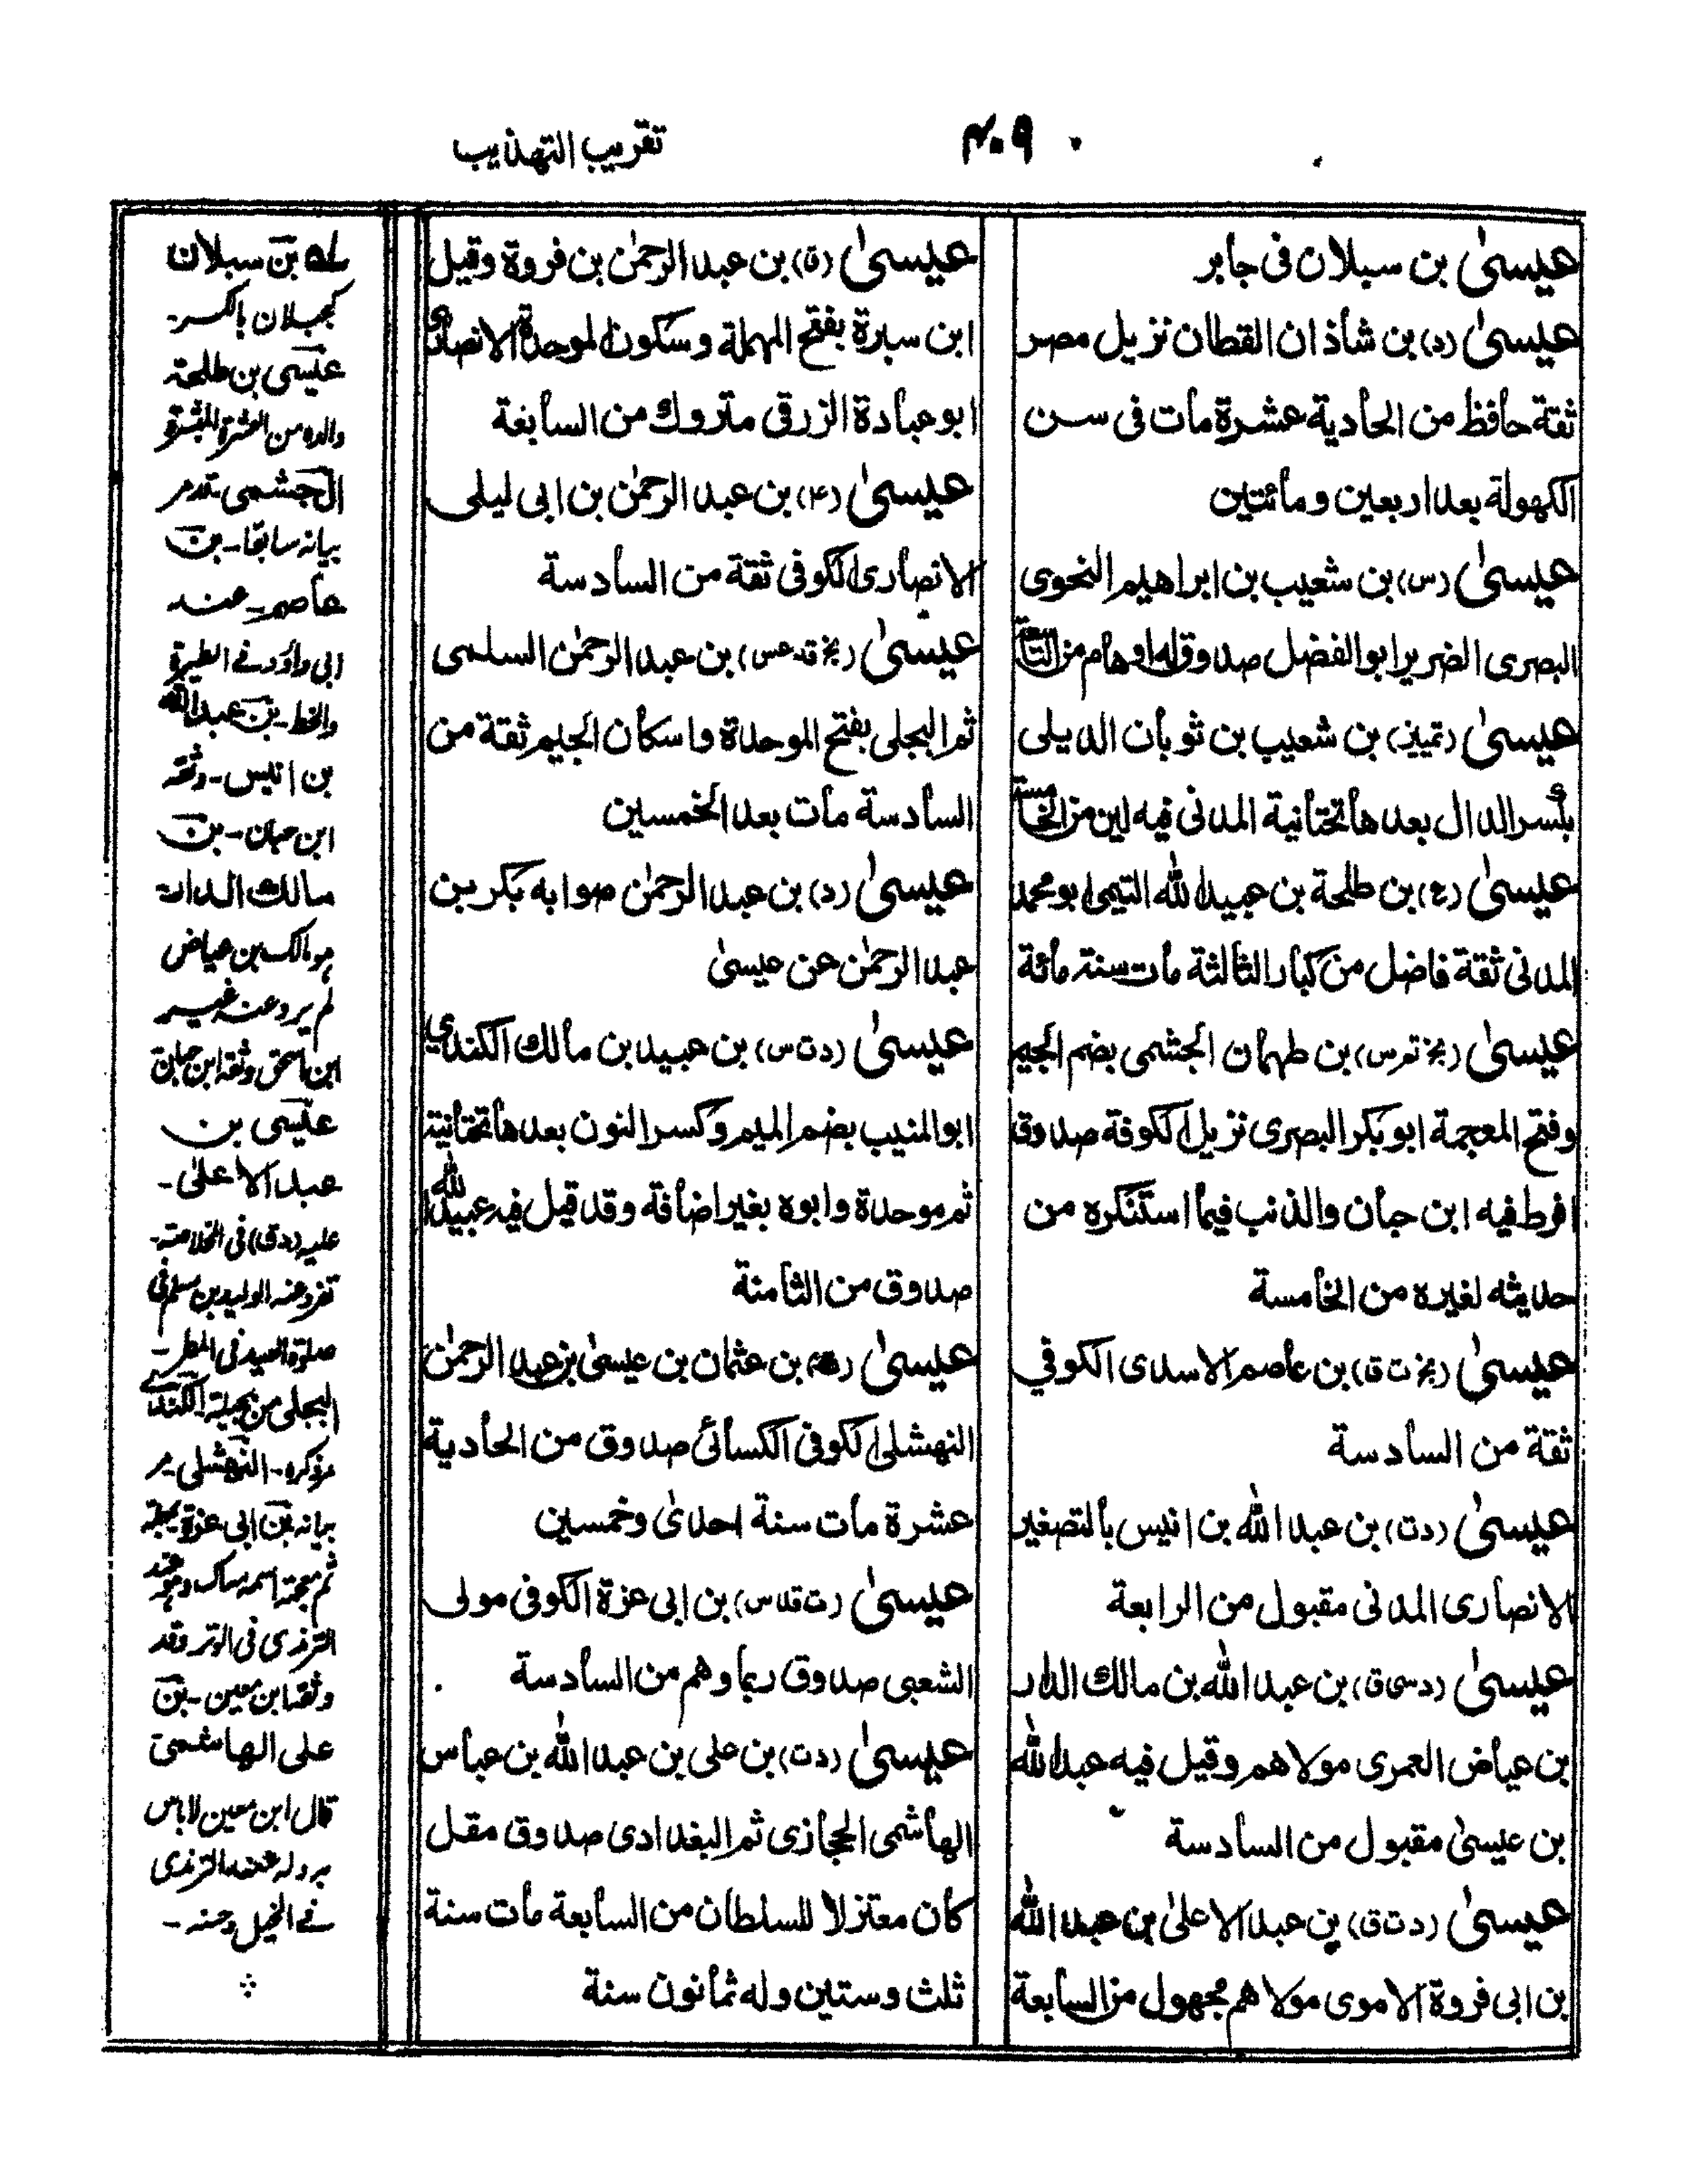 تقريب التهذيب
٣٠٩
عيسىٰ بن سبلان فى جابر
عيسىٰ (د) بن شاذان القطان نزيل مصر
ثقة حافظ من الحادية عشرة مات فى سن
الكهولة بعد اربعين ومائتين
عيسىٰ (س) بن شعيب بن ابراهيم النحوى
البصرى الضرير ابو الفضل صدوق له اوهام من التاسعة
عيسىٰ (تمييز) بن شعيب بن ثوبان الديلى
بكسر الدال بعدها تحتانية المدنى فيه لين من الخامسة
عيسىٰ (ع) بن طلحة بن عبيد الله التيمى ابو محمد
المدنى ثقة فاضل من كبار الثالثة مات سنة مائة
عيسىٰ (بخ تم س) بن طهمان الجشمى بضم الجيم
وفتح المعجمة ابو بكر البصرى نزيل الكوفة صدوق
افرط فيه ابن حبان والذنب فيما استنكره من
حديثه لغيره من الخامسة
عيسىٰ (بخ ت ق) بن عاصم الاسدى الكوفي
ثقة من السادسة
عيسىٰ (دت) بن عبد الله بن انيس بالتصغير
الانصارى المدنى مقبول من الرابعة
عيسىٰ (د سى ق) بن عبد الله بن مالك الدار
بن عياض العمرى مولاهم وقيل فيه عبد الله
بن عيسىٰ مقبول من السادسة
عيسىٰ (د ت ق) بن عبد الاعلىٰ بن عبد الله
بن ابى فروة الاموى مولاهم مجهول من السابعة
عيسىٰ (ق) بن عبد الرحمٰن بن فروة وقيل
ابن سبرة بفتح المهملة وسكون الموحدة الانصارى
ابو عبادة الزرقى متروك من السابعة
عيسىٰ (٤) بن عبد الرحمٰن بن ابى ليلى
الانصارى الكوفى ثقة من السادسة
عيسىٰ (بخ قد عس) بن عبد الرحمٰن السلمى
ثم البجلى بفتح الموحدة واسكان الجيم ثقة من
السادسة مات بعد الخمسين
عيسىٰ (د) بن عبد الرحمٰن صوابه بكر بن
عبد الرحمٰن عن عيسىٰ
عيسىٰ (د ت س) بن عبيد بن مالك الكندي
ابو المنيب بضم الميم وكسر النون بعدها تحتانية
ثم موحدة وابوه بغير اضافة وقد قيل فيه عبيد الله
صدوق من الثامنة
عيسىٰ بن عثمان بن عيسىٰ بن عبد الرحمٰن
النهشلى الكوفى الكسائى صدوق من الحادية
عشرة مات سنة احدىٰ وخمسين
عيسىٰ (ت قد س) بن ابى عزة الكوفى مولى
الشعبى صدوق ربما وهم من السادسة
عيسىٰ (دت) بن على بن عبد الله بن عباس
الهاشمى الحجازى ثم البغدادى صدوق مقل
كان معتزلا للسلطان من السابعة مات سنة
ثلث وستين وله ثمانون سنة
له بن سبلان
كجبلان بالكسر-
عيسى بن طلحة
والده من العشرة المبشرة
الجشمى-تقدم
بيانه سابقا-بن
عاصم-عند
ابى داؤد فے الطيرة
والخط-بن عبد الله
بن انيس-وثقه
ابن حبان-بن
مالك الدار
هو مالك بن عياض
لم يرو عنه غير
ابن اسحق وثقه ابن حبان
عيسى بن
عبد الاعلى-
عليه (دق) فى الخلاصة-
تفرد عنه الوليد بن مسلم فى
صلوة العيد فى المطر-
البجلى من بجيلة الكندے
مر ذكره-النهشلى-مر
بيانه بن ابى عزة
ثم معجمة اسمه سماك وهو عند
الترمذى فى الوتر وقد
وثقه ابن معين-بن
على الهاشمى
قال ابن معين لا باس
به وله عند الترمذى
فے الخيل وحسنه-